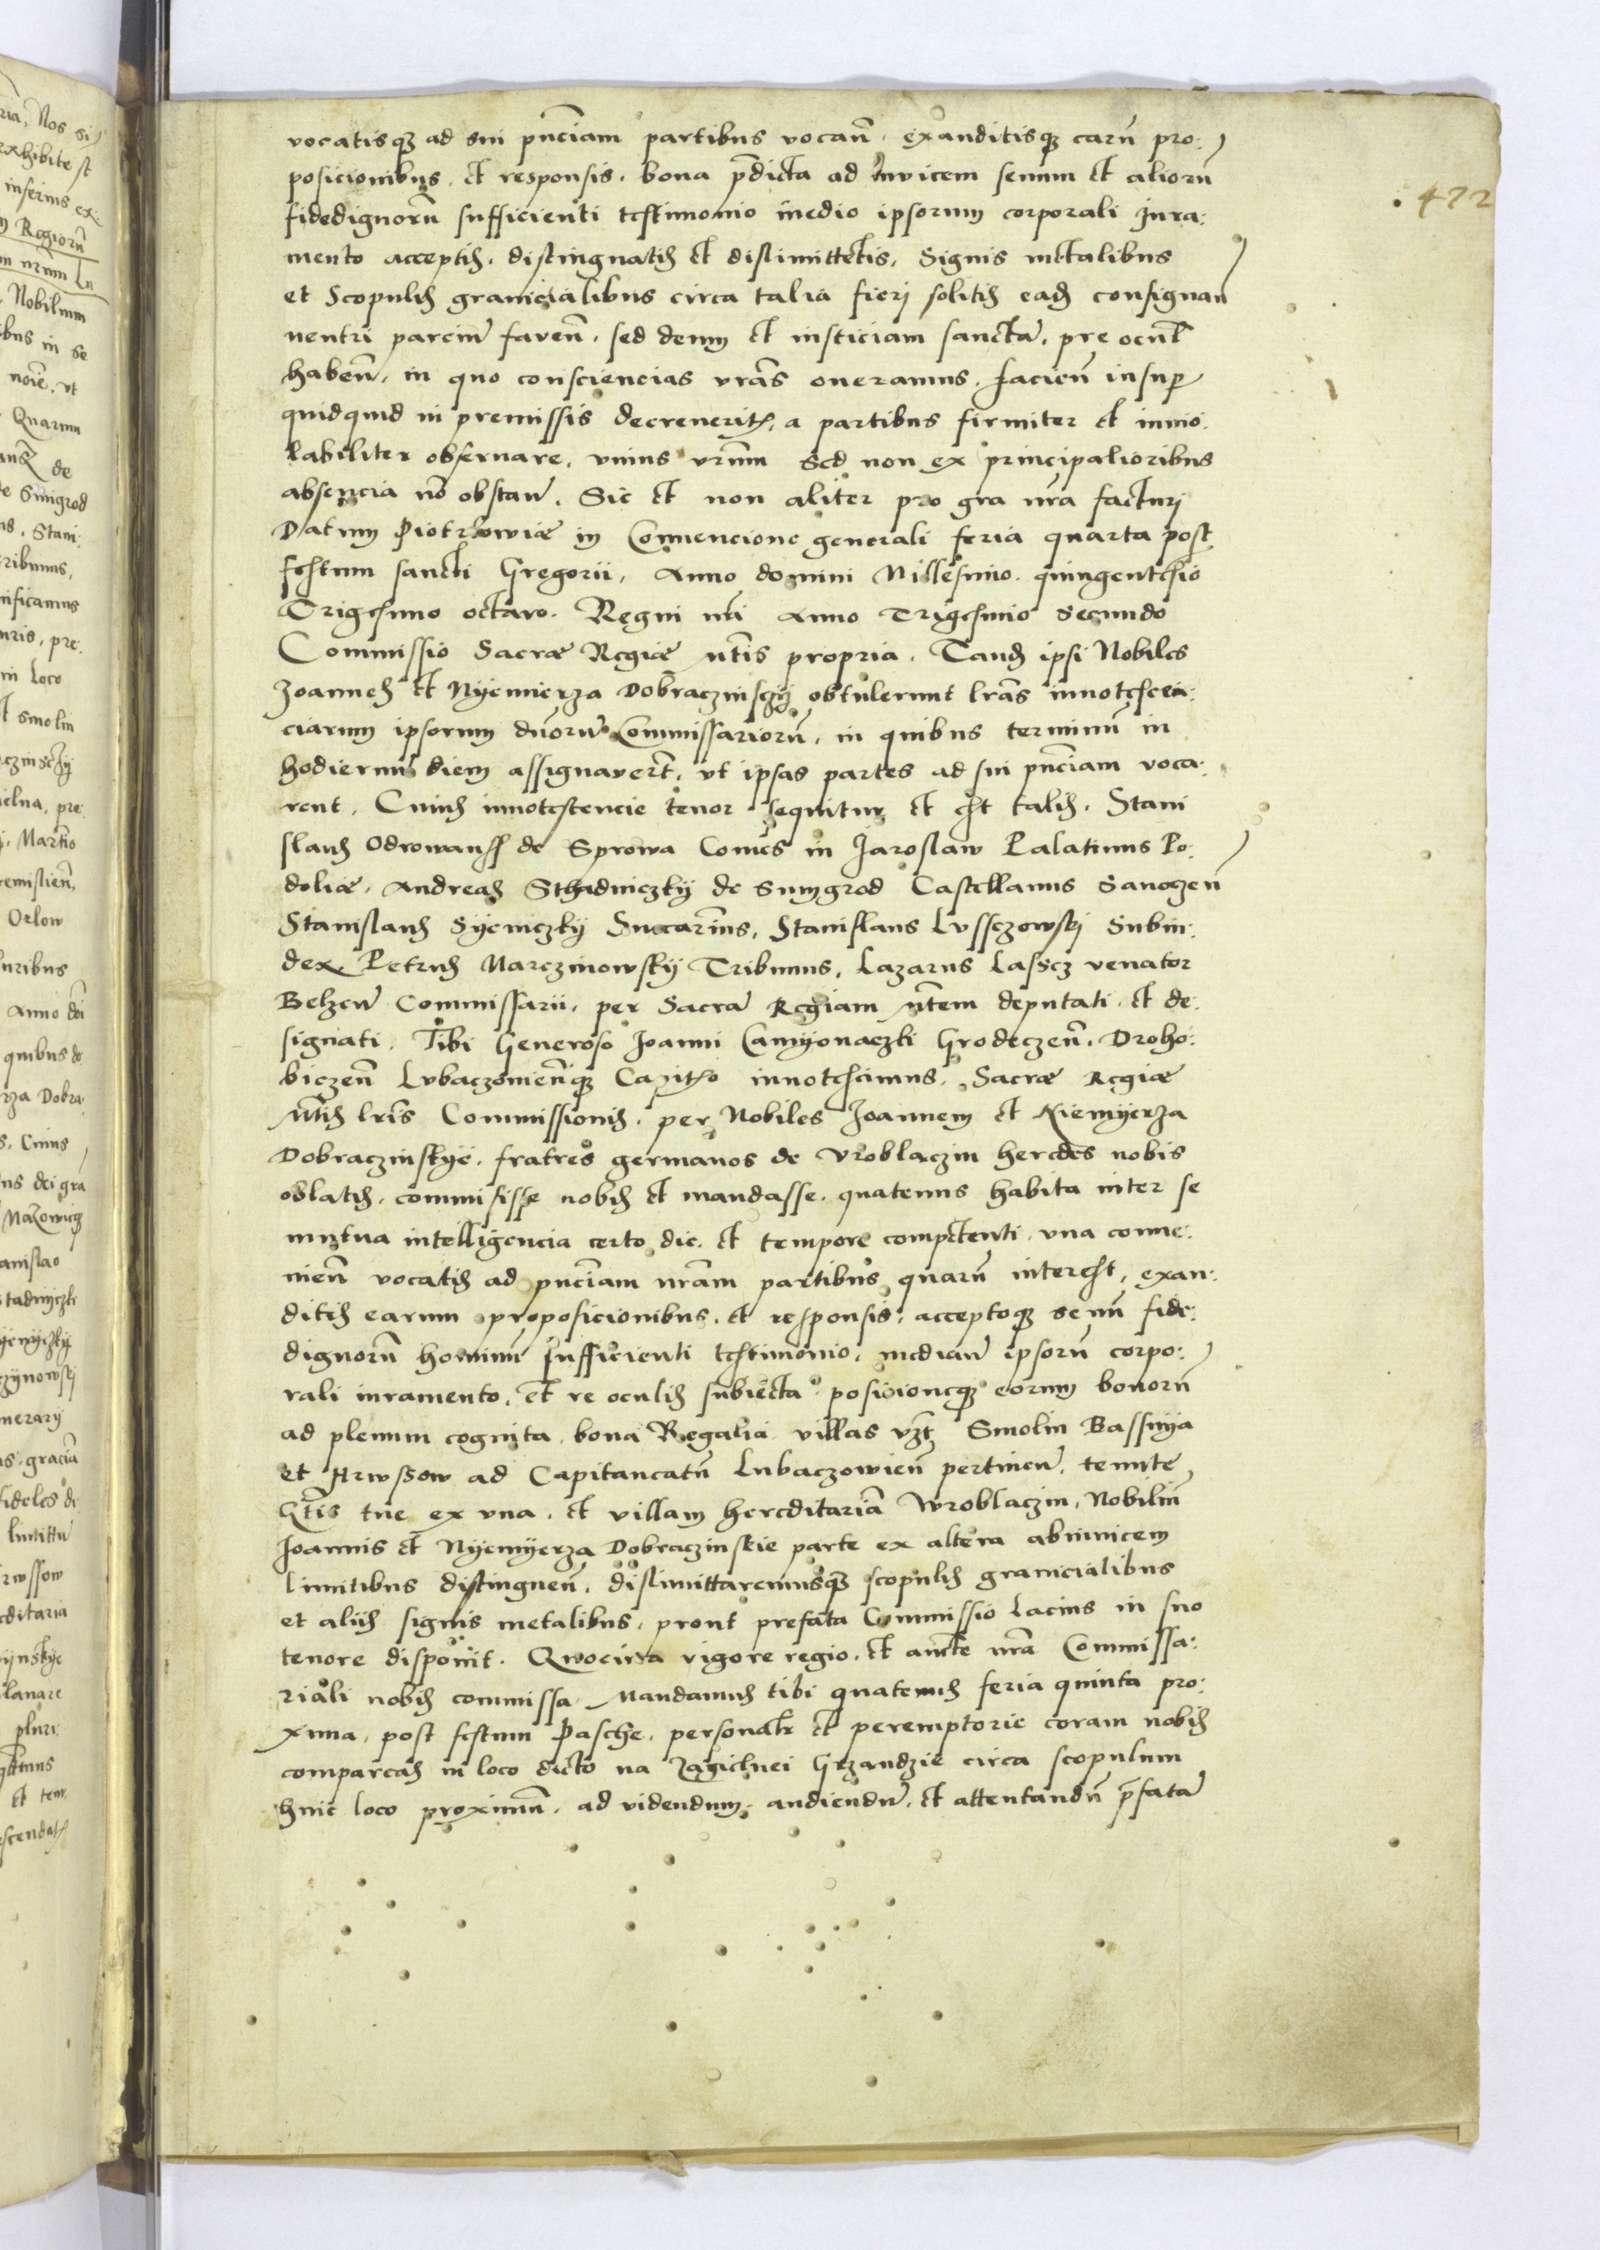 vocatisq3 ad sui pn̄ciam partibus vocan̄. exauditisq3 earū pro:
posicionibus. et responsis. bona p̄dicta ad Invicem senum et aliorū
fidedignorū sufficienti testimonio medio ipsorum corporali Iura:
mento acceptis. distinguatis et dislimittetis, Signis metalibus
et Scopulis granicialibus circa talia fieri solitis ead3 consignan
neutri parciū faven̄. sed deum et iusticiam sanctā. pre ocul̄
haben̄. in quo consciencias vrās oneramus. facien̄ insup
quidquid in premissis decreverit3. a partibus firmiter et invio:
labiliter observare, unius vrūm sed non ex principalioribus
absencia nō obstan̄. Sic et non aliter pro gra nrā facturi
Datum Piotrkowiæ in Convencione generali feria quarta post
festum sancti Gregorii, Anno domini Millesimo. quingentesio
Trigesimo octavo. Regni nrī Anno Trigesimo secundo
Commissio Sacræ Regiæ mtīs propria. Tand3 ipsi Nobiles
Joannes et Nyemierza Dobraczinsczij obtulerunt lrās innotescen:
ciarum ipsorum dn̄orū Commissariorū, in quibus terminū in
hodiernū diem assignaverūt, vt ipsas partes ad sui pn̄ciam voca:
rent. Cuius innotescencie tenor sequitur et est talis. Stani
slaus Odrowansz de Sprowa Comes in Jaroslaw Palatinus Po:
doliæ, Andreas Sthadniczky de Smygrod Castellanus Sanoczen̄
Stanislaus Syeniczky Succam̄s, Stanislaus Lvssczowskj Subiu:
dex, Petrus Marczinowsky Tribunus, Lazarus Lasscz venator
Belzen̄ Commissarii, per Sacrā Regiam Mtem deputati. et de:
signati. Tibi Generoso Joanni Camyonaczki Grodeczen̄. Droho:
biczen̄ Lvbaczovien̄q3 Capit3o innotescimus. Sacræ Regiæ
Mtīs lrīs Commissionis. per Nobiles Joannem et Niemyerza
Dobraczinskye. fratres germanos de Vroblaczin heredes nobis
oblatis. commisisse nobis et mandasse. quatenus habita inter se
mutua intelligencia certo die. et tempore competenti. una conve:
nien̄ vocatis ad pn̄ciam nrām partibus quarū interest, exau:
ditis earum proposicionibus. et responsis. acceptoq3 senū fide:
dignorū hominū sufficienti testimonio. median̄ ipsorū corpo:
rali iuramento. et re oculis subiecta. posicioneq3 eorum bonorū
ad plenum cognita. bona Regalia villas vzt Smolin Bassnija
et Hrwssow ad Capitaneatū Lubaczowien̄ pertinen̄. tenute
Gtīs tue ex una. et villam hereditariā Wroblaczin. Nobiliū
Joannis et Nyemyerza Dobraczinskie parte ex altera abinvicem
limitibus distinguen̄. dislimittaremusq3 scopulis granicialibus
et aliis signis metalibus. prout prefata Commissio lacius in suo
tenore disponit. Quocirca vigore regio. et aucte nrā Commissa:
riali nobis commissa. Mandamus tibi quatenus feria quinta pro:
xima, post festum Pasche. personalr et peremptorie coram nobis
compareas in loco dicto na Zagielnei Grzandzie circa scopulum
huic loco proximū. ad videndum. audiendū. et attentandū p̄fatā
472